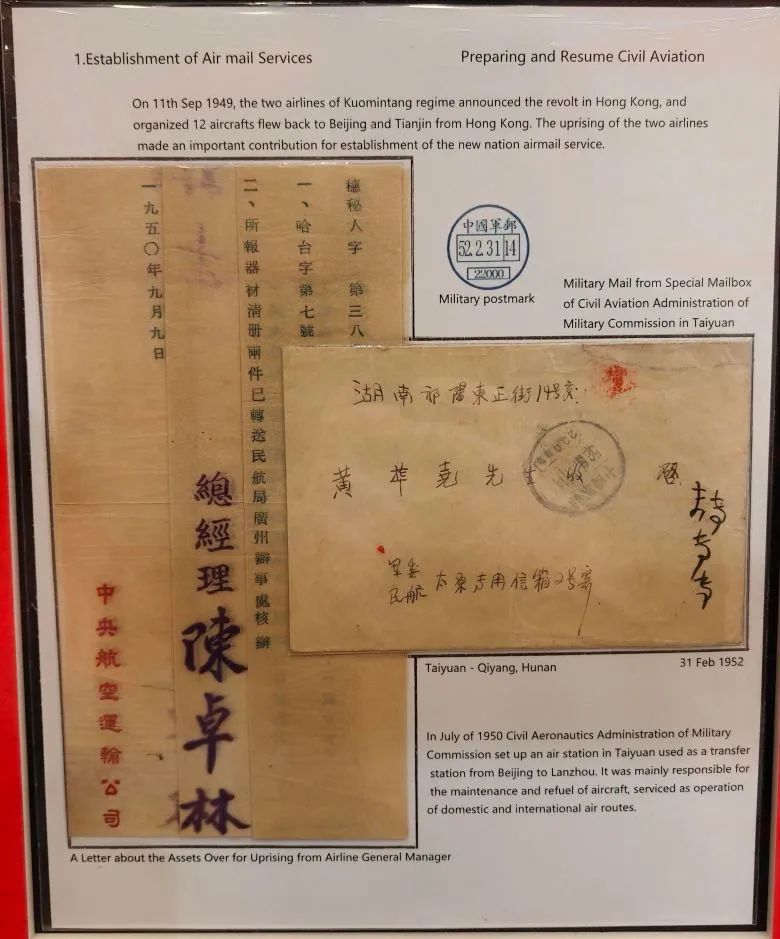 1.Establishment of Air mail Services
Preparing and Resume Civil Aviation
On 11th Sep 1949, the two airlines of Kuomintang regime announced the revolt in Hong Kong, and
organized 12 aircrafts flew back to Beijing and Tianjin from Hong Kong. The uprising of the two airlines
made an important contribution for establishment of the new nation airmail service.
穗秘人字 第三八
一、哈台字第七號
二、所報器材清册兩件已轉送民航局廣州辦事處核辦
一九五〇年九月九日
總經理陳卓林
中央航空運輸公司
中國軍郵
52.2.31 14
22000
Military postmark
Military Mail from Special Mailbox
of Civil Aviation Administration of
Military Commission in Taiyuan
湖南祁陽東正街14号交
黃 堯先生收 啓
軍委
民航
太原专用信箱2号寄
Taiyuan - Qiyang, Hunan
31 Feb 1952
In July of 1950 Civil Aeronautics Administration of Military
Commission set up an air station in Taiyuan used as a transfer
station from Beijing to Lanzhou. It was mainly responsible for
the maintenance and refuel of aircraft, serviced as operation
of domestic and international air routes.
A Letter about the Assets Over for Uprising from Airline General Manager